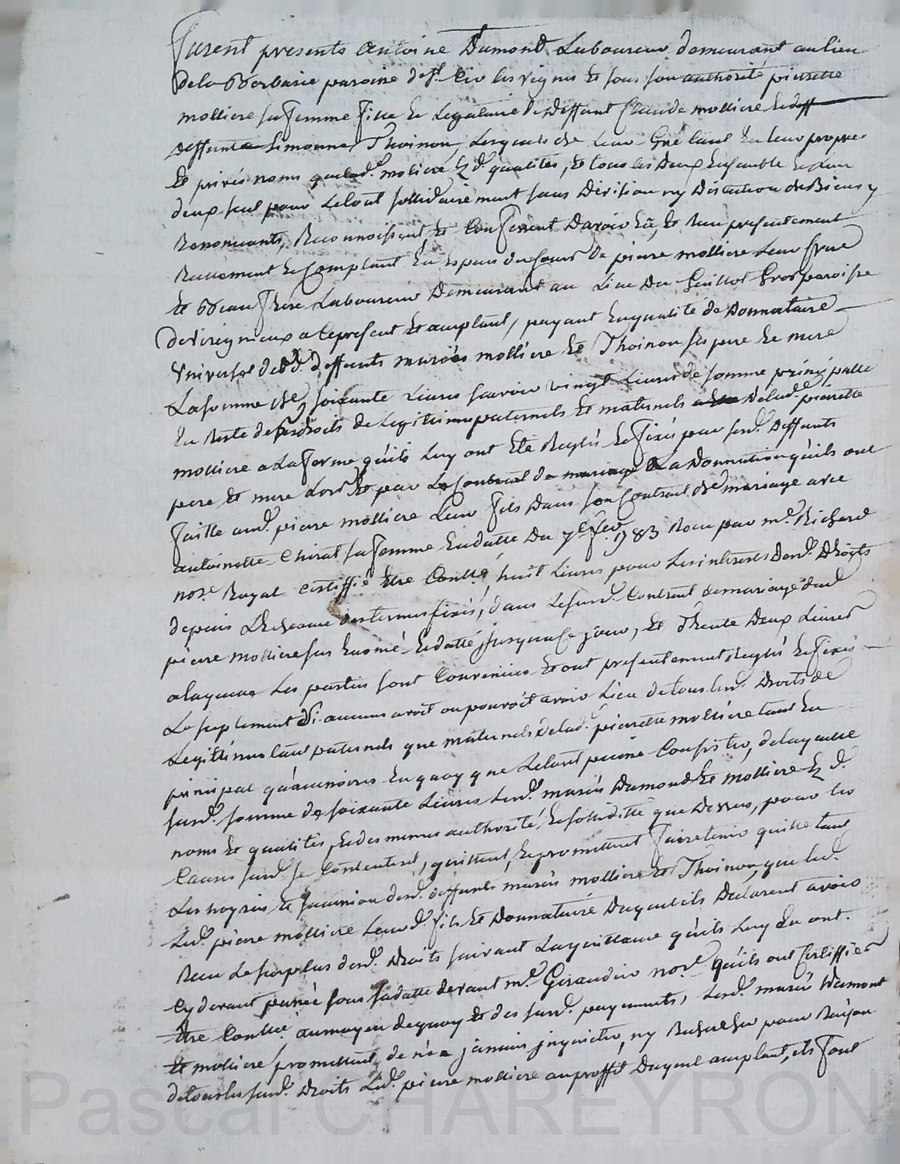 furent presents antoine Dumond Laboureur demeurant au lieu
dela Borbarie paroisse de st. les vignes Et sous son authorité pierrette
molliere sa femme fille Et Legataire de deffunt Claude molliere Et deff
deffunte Simonne Thoinon Lesquels de Leur Gré tant En leur propres
Et privés noms que lad. moliere Ez d. qualités, Et tous les deux Ensemble Et L'un
deux seul pour Letout sollidairement sans Division ny Discution de Biens y
Renonceants, Reconnoissent Et Confessent Davoir Eü, Et Reçu presentement
Reellement Et Comptant En Espece du Cours De pierre molliere Leur frere
Et Beau frere Laboureur Demeurant au Lieu Du Guillot Gros paroisse
de virigneux a Ce present Et acceptant, payant En qualité de Donnataire
Universel desd. deffunts mariés molliere Et Thoinon ses pere Et mere
La somme de soixante Livres savoir vingt Livres de somme principalle
En Reste des droits de Legitimes paternels Et maternels de lad. pierrette
molliere a La forme qu'ils Luy ont Eté Reglés Et fixés par sesd. Deffunts
pere Et mere Lors Et par Le Contrat de mariage Et La Donnation qu'ils ont
faitte aud. pierre molliere Leur fils Dans son Contrat de mariage avec
antoinette Chirat sa femme En datte Du 7e. fev. 1783 Reçu par me. Richard
nore. Royal Certiffié Etre Controllé huit Livres pour Les interets desd. Droits
depuis L'Echeance des termes fixés, dans Lesusd. Contrat de mariage dud.
pierre molliere sus Enoncé Et datté jusqua ce jour, Et Trente Deux Livres
alaquelle Les parties sont Convenües Et ont presentement Reglé Et fixé
Le suplement Si aucuns avoit ou pouvoit avoir Lieu de tous lesd. Droits de
Legitimes tant paternels que maternels de lad. pierrette molliere tant En
principal qu'accessoires En quoy que Le tout puisse Consister, de laquelle
susd. somme de soixante Livres Lesd. mariés Dumond Et molliere Ez d.
noms Et qualités, Et des memes authorité Et sollidité que Dessus, pour les
Causes susd. se Contentent, quittent, Et promettent faire tenir quitte tant
Les hoyries Et succession desd. deffunts mariés molliere Et Thoinon, que led.
Led. pierre molliere Leurd. fils Et Donnataire Duquel ils Declarent avoir
Reçu Le surplus desd. Droits suivant La quittance qu'ils Luy En ont
Cy devant passée sous sa datte devant me. Giraudier nore. qu'ils ont Certiffiée
Etre Controllée aumoyen dequoy Et des susd. payements, Lesd. mariés Dumont
Et moliere promettent de n'En jamais inquieter, ny Rechercher pour Raison
de tous les susd. Droits Led. pierre molliere au proffit Duquel acceptant, ils font